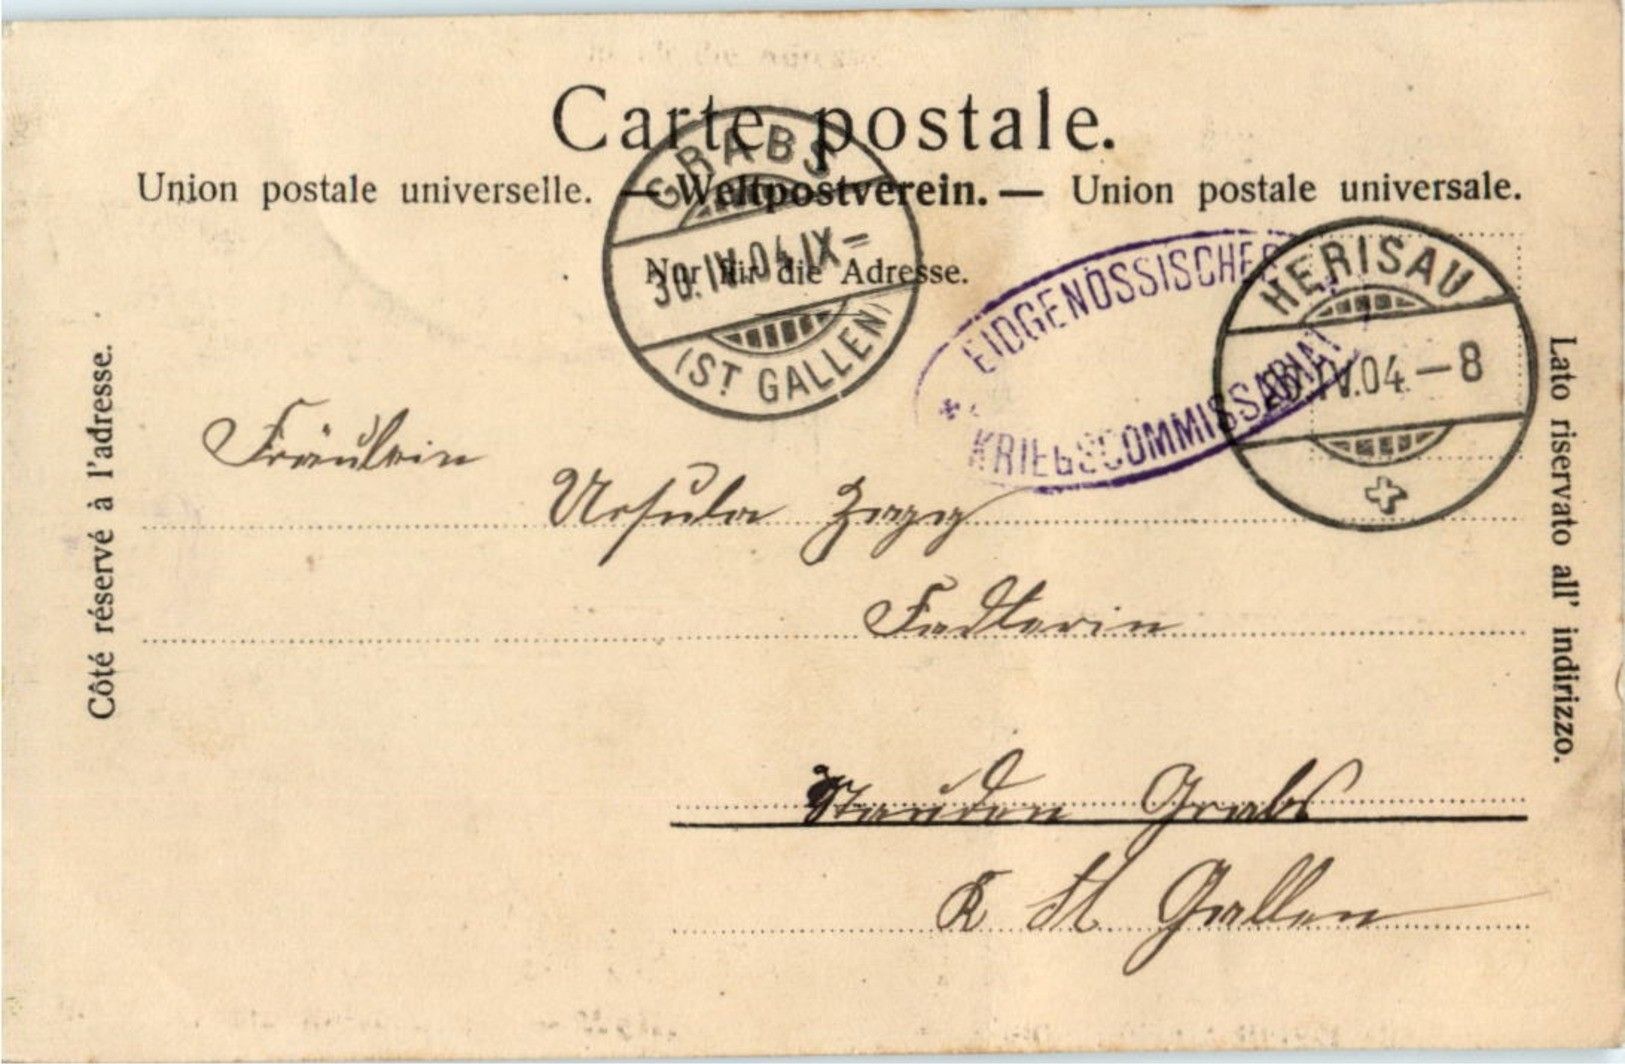 Carte postale.
Union postale universelle. — Weltpostverein. — Union postale universale.
Nur für die Adresse.
GRABS
30.IV.04.IX–
(ST. GALLEN)
EIDGENÖSSISCHES
KRIEGSCOMMISSARIAT
HERISAU
.IV.04.–8
Côté réservé à l'adresse.
Lato riservato all' indirizzo.
Fräulein
Ursula
Stauden Grabs
K St. Gallen